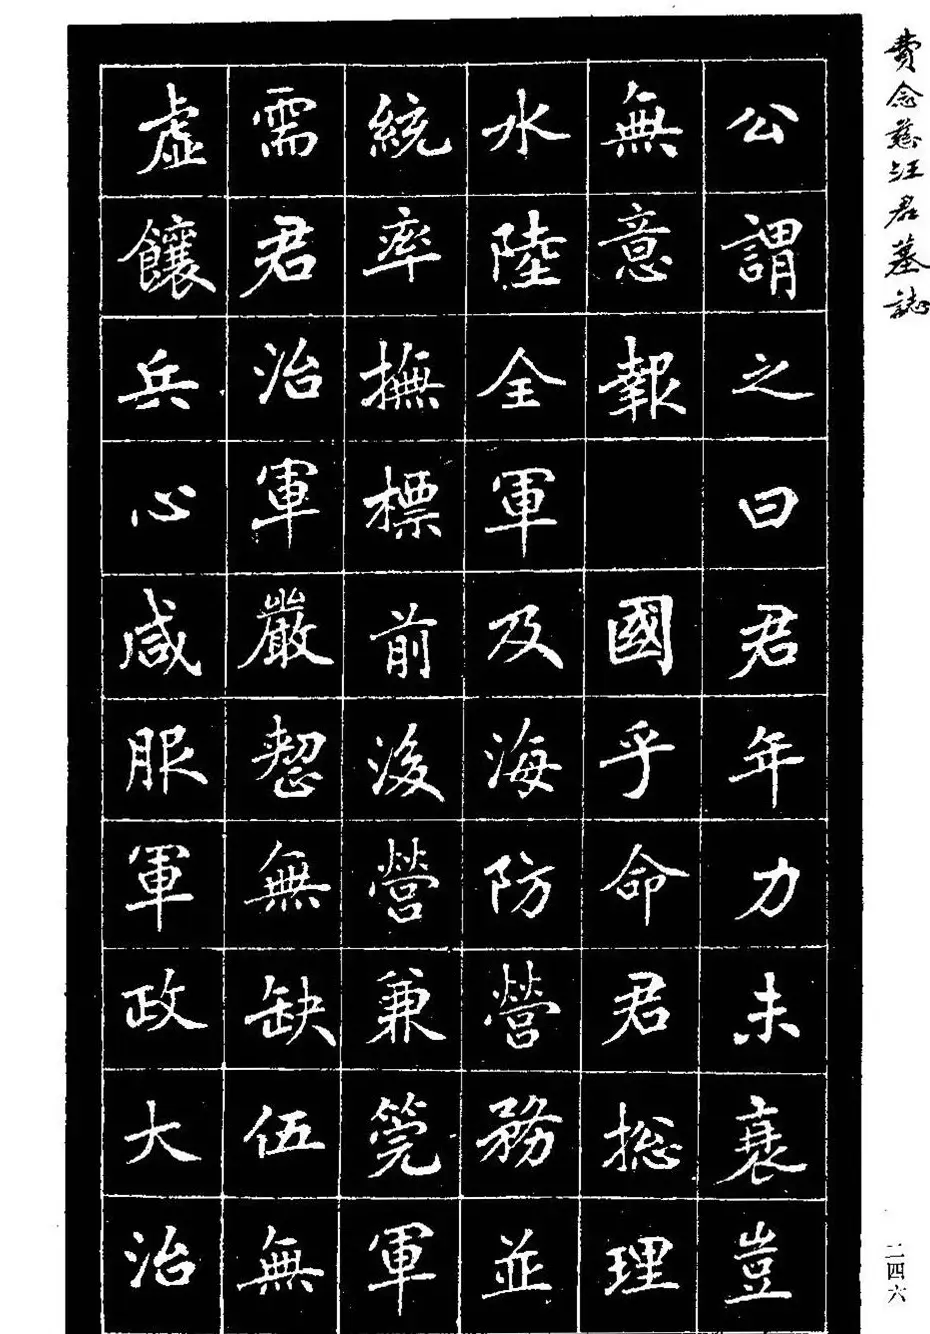 費念慈汪君墓誌
公謂之曰君年力未衰豈
無意報 國乎命君摠理
水陸全軍及海防營務並
統率撫標前後營兼筦軍
需君治軍嚴整無缺伍無
虛饟兵心咸服軍政大治
二四六